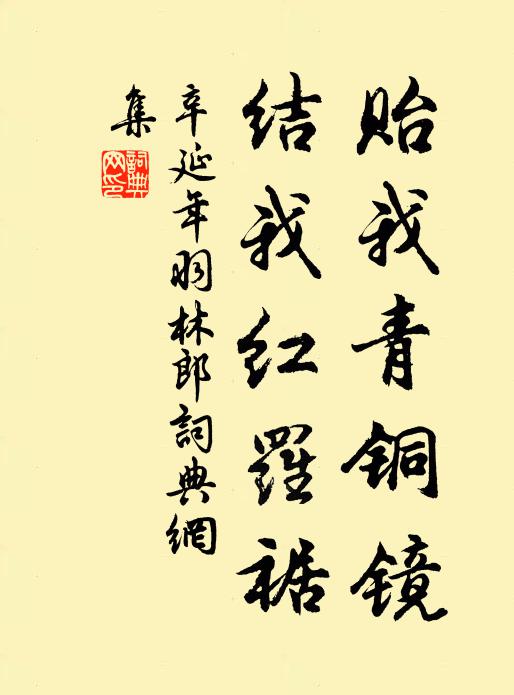 贻我青铜镜
结我红罗裾
辛延年羽林郎詞典網
集
詞典网印